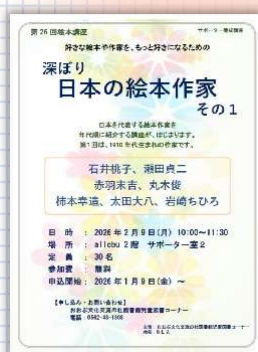 第26回絵本講座
サポーター養成講座
好きな絵本や作家を、もっと好きになるための
深ぼり
日本の絵本作家
その1
日本を代表する絵本作家を
年代順に紹介する講座が、はじまります。
第1回は、1910年代生まれの作家です。
石井桃子、瀬田貞二
赤羽末吉、丸木俊
柿本幸造、太田大八、岩崎ちひろ
日 時 : 2026年2月9日(月) 10:00~11:30
場 所 : allcbu 2階 サポーター室2
定 員 : 30名
参加費 : 無料
申込開始 : 2026年1月9日(金) ~
【申し込み・お問い合わせ】
おおぶ文化交流の杜図書館児童図書コーナー
電話:0562-48-1808